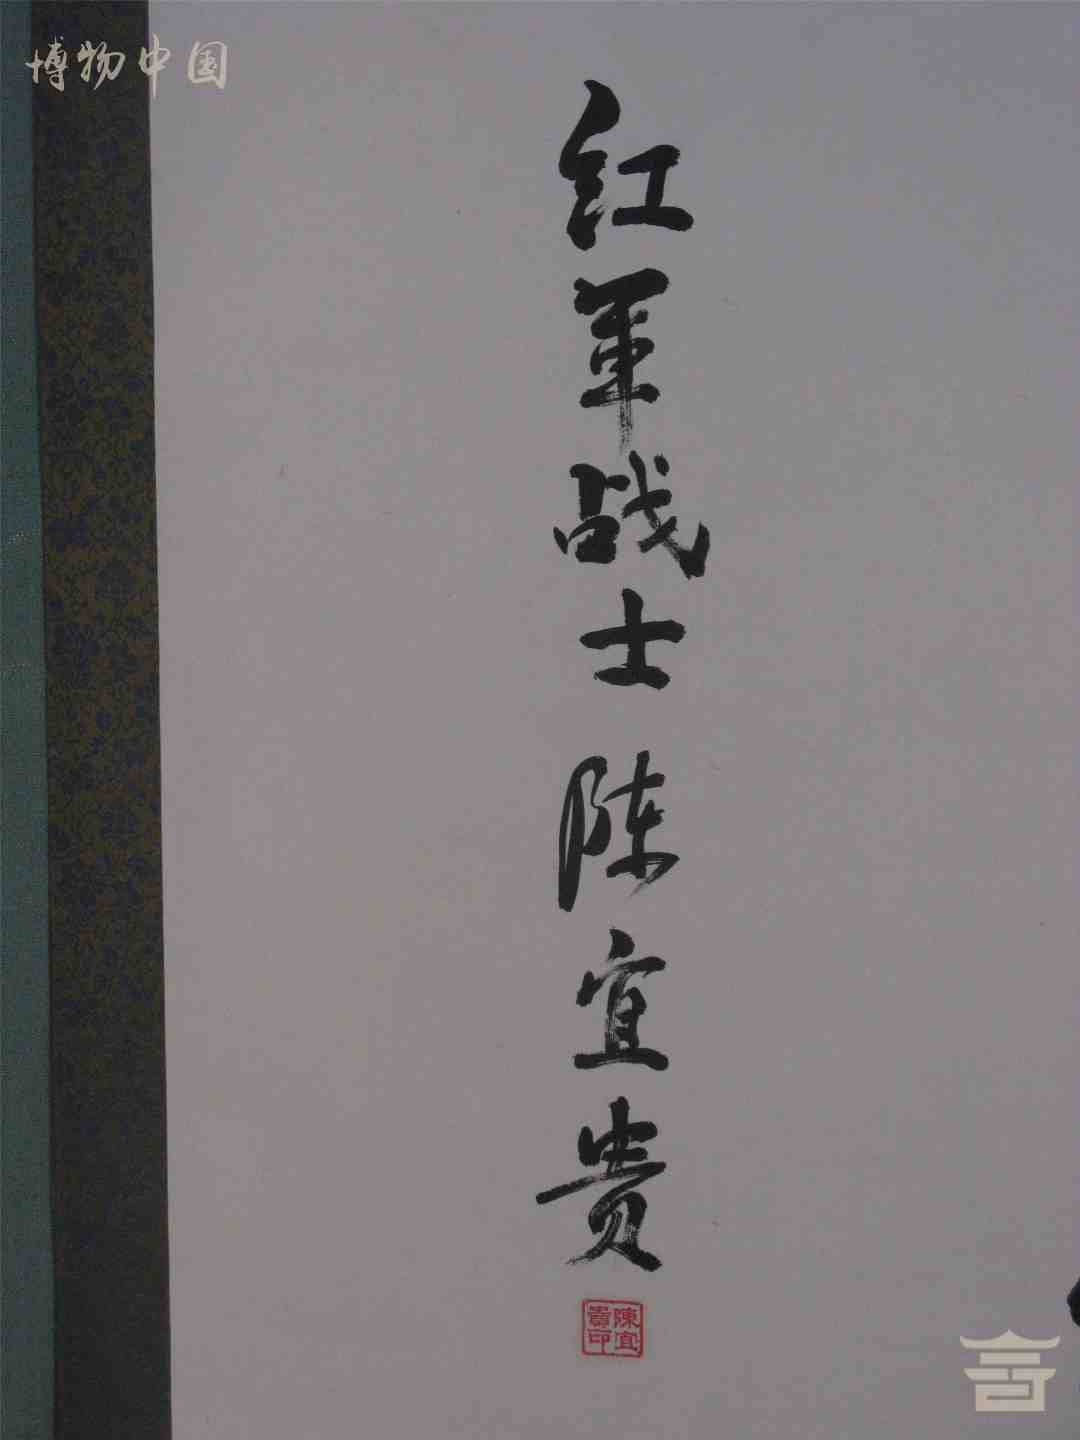 博物中国
红军战士 陈宜贵
陳宜
貴印